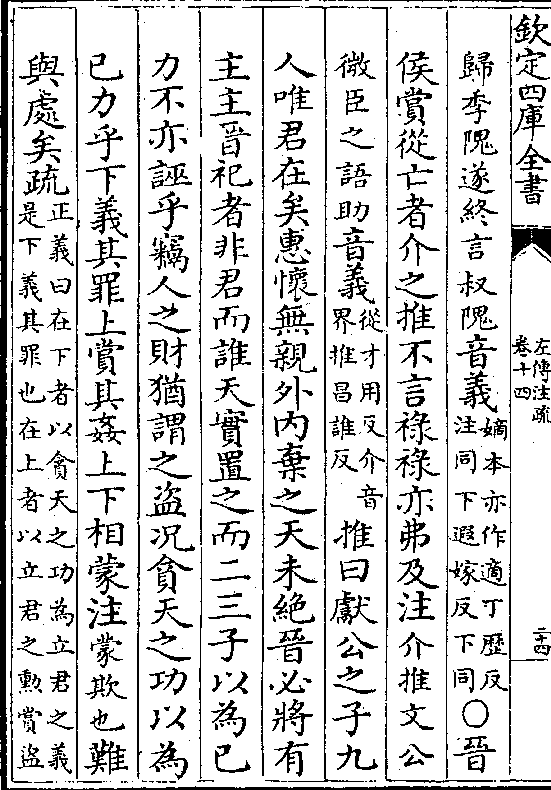 欽定四庫全書
左傳注疏
卷十四
二十四
歸季隗遂終言叔隗音義嫡本亦作適丁歷反
注同下遐嫁反下同○晉
侯賞從亡者介之推不言祿祿亦弗及注介推文公
微臣之語助音義從才用反介音
界推昌誰反推曰獻公之子九
人唯君在矣惠懷無親外内棄之天未絶晉必將有
主主晉祀者非君而誰天實置之而二三子以為已
力不亦誣乎竊人之財猶謂之盜况貪天之功以為
已力乎下義其罪上賞其姦上下相蒙注蒙欺也難
與處矣疏正義曰在下者以貪天之功為立君之義
是下義其罪也在上者以立君之勲賞盜